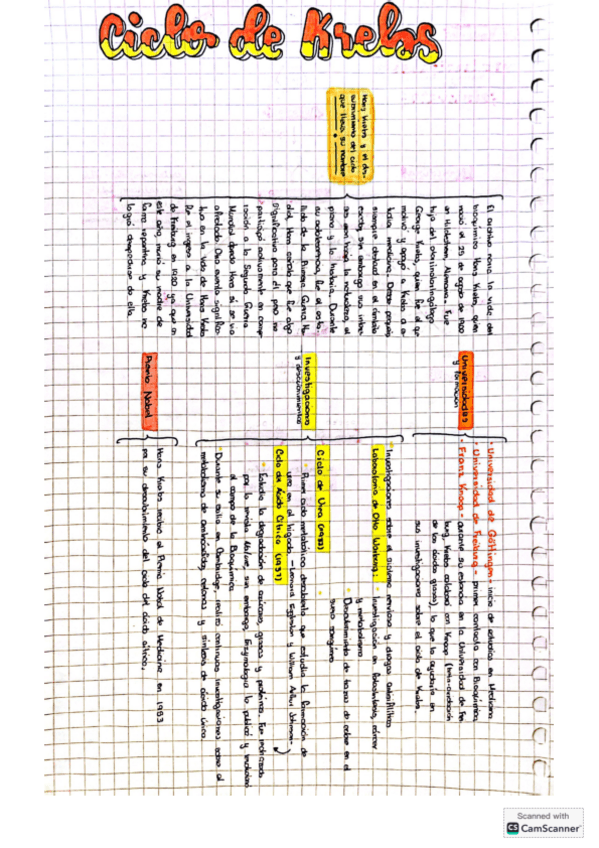 Ciclo de Krebs
Hans Krebs y el des-
cubrimiento del ciclo
que lleva su nombre
El archivo narra la vida del
bioquímico Hans Krebs, quien
nació el 25 de agosto de 1900
en Hildesheim, Alemania. Fue
hijo del otorrinolaringólogo
George Krebs, quien fue el que
motivó y apoyó a Krebs a es-
tudiar medicina. Desde pequeño
siempre destacó en el ámbito
escolar, sin embargo sus intere-
ses eran hacia la naturaleza, el
piano y la historia. Durante
su adolescencia, fue el esta-
llido de la Primera Guerra Mun-
dial, Hans señala que fue algo
significativo para él pero no
participó activamente en compa-
ración a la Segunda Guerra
Mundial donde Hans sí se vio
afectado. Otro evento significa-
tivo en la vida de Hans Krebs
fue el ingreso a la Universidad
de Freiburg en 1920 ya que en
este año, murió su madre de
forma repentina y Krebs no
logró despedirse de ella.
Universidades
y formación
• Universidad de Göttingen - inicio de estudios en Medicina
• Universidad de Freiburg - primer contacto con Bioquímica
• Franz Knoop - durante su estancia en la Universidad de Frei
burg, Krebs colaboró con Knoop (beta-oxidación
de los ácidos grasos), lo que lo ayudaría en
sus investigaciones sobre el ciclo de Krebs.
Investigaciones
y descubrimientos
• Investigaciones sobre el sistema nervioso y drogas antisifilíticas
Laboratorio de Otto Warburg: Investigación en fotosíntesis, cáncer
y metabolismo
• Descubrimiento de trazas de cobre en el
suero sanguíneo
Ciclo de Urea (1932)
• Primer ciclo metabólico descubierto que estudia la formación de
urea en el hígado
Ciclo del Ácido Cítrico (1937)
• Estudia la degradación de azúcares, grasas y proteínas. Fue rechazado
por la revista Nature, sin embargo, Enzymologia lo publicó y revolucionó
el campo de la Bioquímica
• Durante su exilio en Cambridge, realizó continuas investigaciones sobre el
metabolismo de carbohidratos, cetonas y síntesis de ácido úrico.
Premio Nobel
Hans Krebs recibió el Premio Nobel de Medicina en 1953
por su descubrimiento del ciclo del ácido cítrico.
Scanned with
CS CamScanner